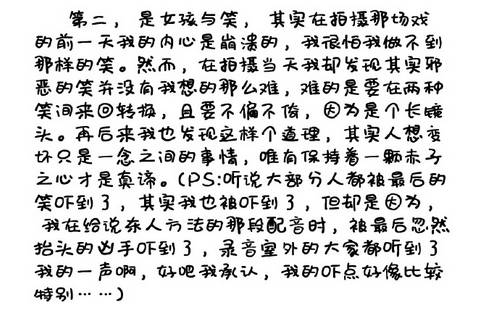 第二，是女孩与笑，其实在拍摄那场戏
的前一天我的内心是崩溃的，我很怕我做不到
那样的笑。然而，在拍摄当天我却发现其实邪
恶的笑并没有我想的那么难，难的是要在两种
笑间来回转换，且要不偏不倚，因为是个长镜
头。再后来我也发现这样个道理，其实人想变
坏只是一念之间的事情，唯有保持着一颗赤子
之心才是真谛。（PS:听说大部分人都被最后的
笑吓到了，其实我也被吓到了，但却是因为，
我在给说东人方法的那段配音时，被最后忽然
抬头的凶手吓到了，录音室外的大家都听到了
我的一声啊，好吧我承认，我的吓点好像比较
特别……）